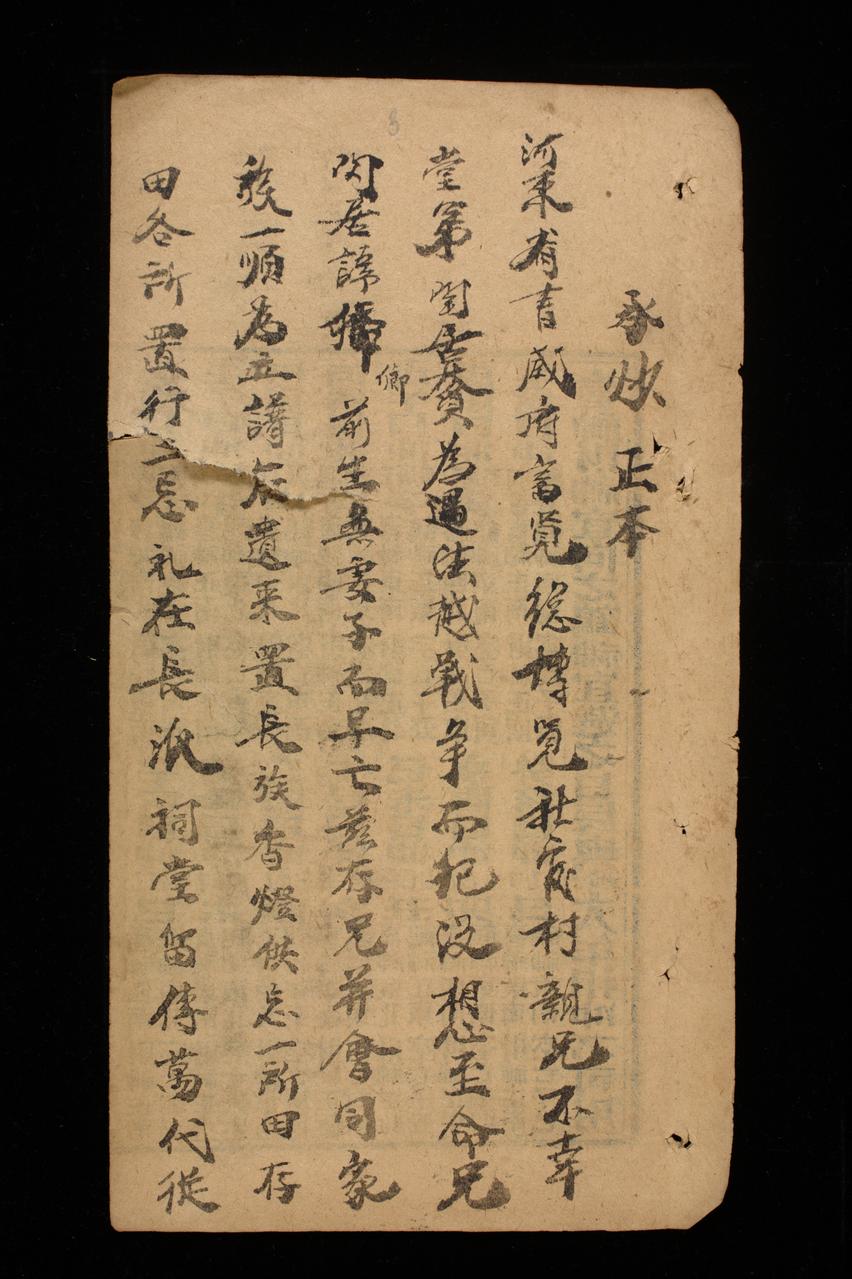 承炒 正本
河東省青威府富覽總博覽社富村親兄不幸
堂弟閏居賛為遇法越戰争而犯没想至命兄
閏居諱 前生無妻子而早亡茲存兄并會同家
卿
族一順為立譜 遺来置長族香燈供忌一所田存
田各所置行 忌礼在長派祠堂留傳萬代從